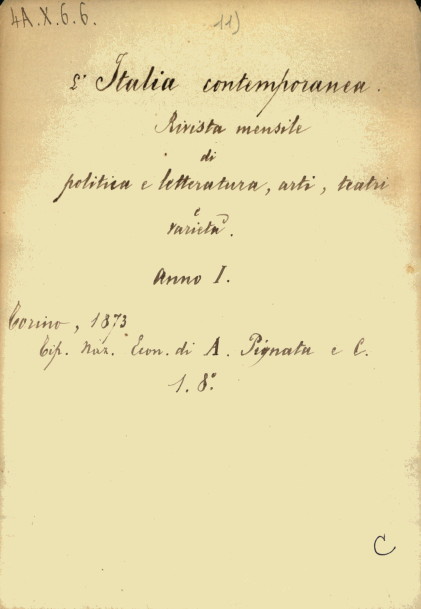 4A.X.6.6.
11)
L' Italia contemporanea.
Rivista mensile
di
politica e letteratura, arti, teatri
e
varietà.
Anno I.
Torino, 1873
Tip. Naz. Econ. di A. Pignata e C.
1. 8°.
C